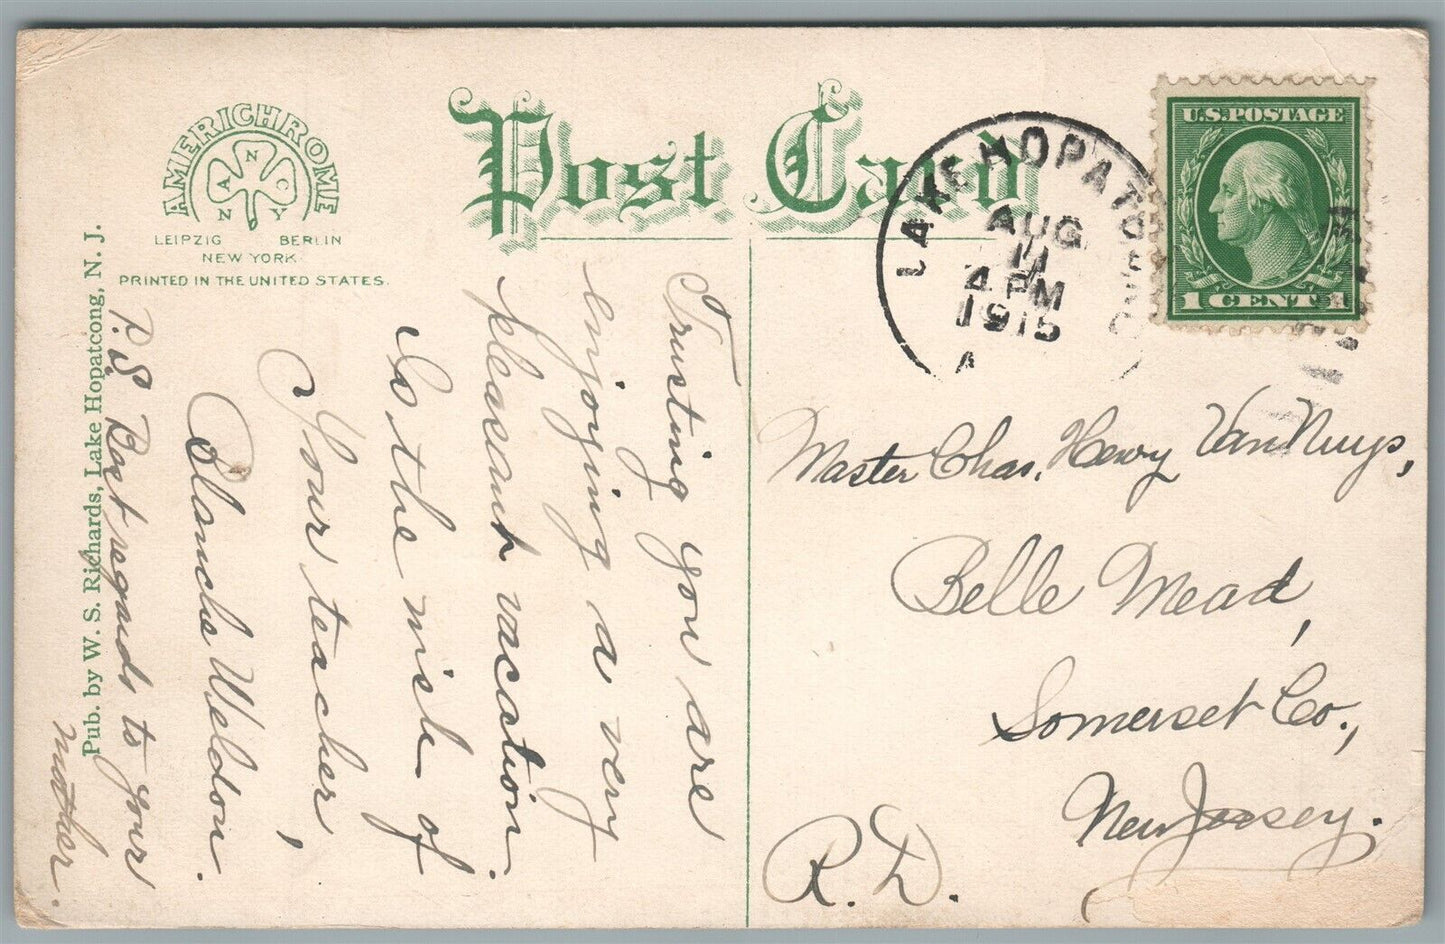 AMERICHROME
ANCNY
LEIPZIG BERLIN
NEW YORK
PRINTED IN THE UNITED STATES.
Post Card
LAKE HOPATCONG
AUG
11
4 PM
1915
A
U.S. POSTAGE
1 CENT 1
Pub. by W. S. Richards, Lake Hopatcong, N. J.
Trusting you are
enjoying a very
pleasant vacation.
Is the wish of
Your teacher,
Blanche Weldon.
P.S. Best regards to your
mother.
Master Chas. Henry Van Nuys,
Belle Mead,
Somerset Co.,
New Jersey.
R.D.